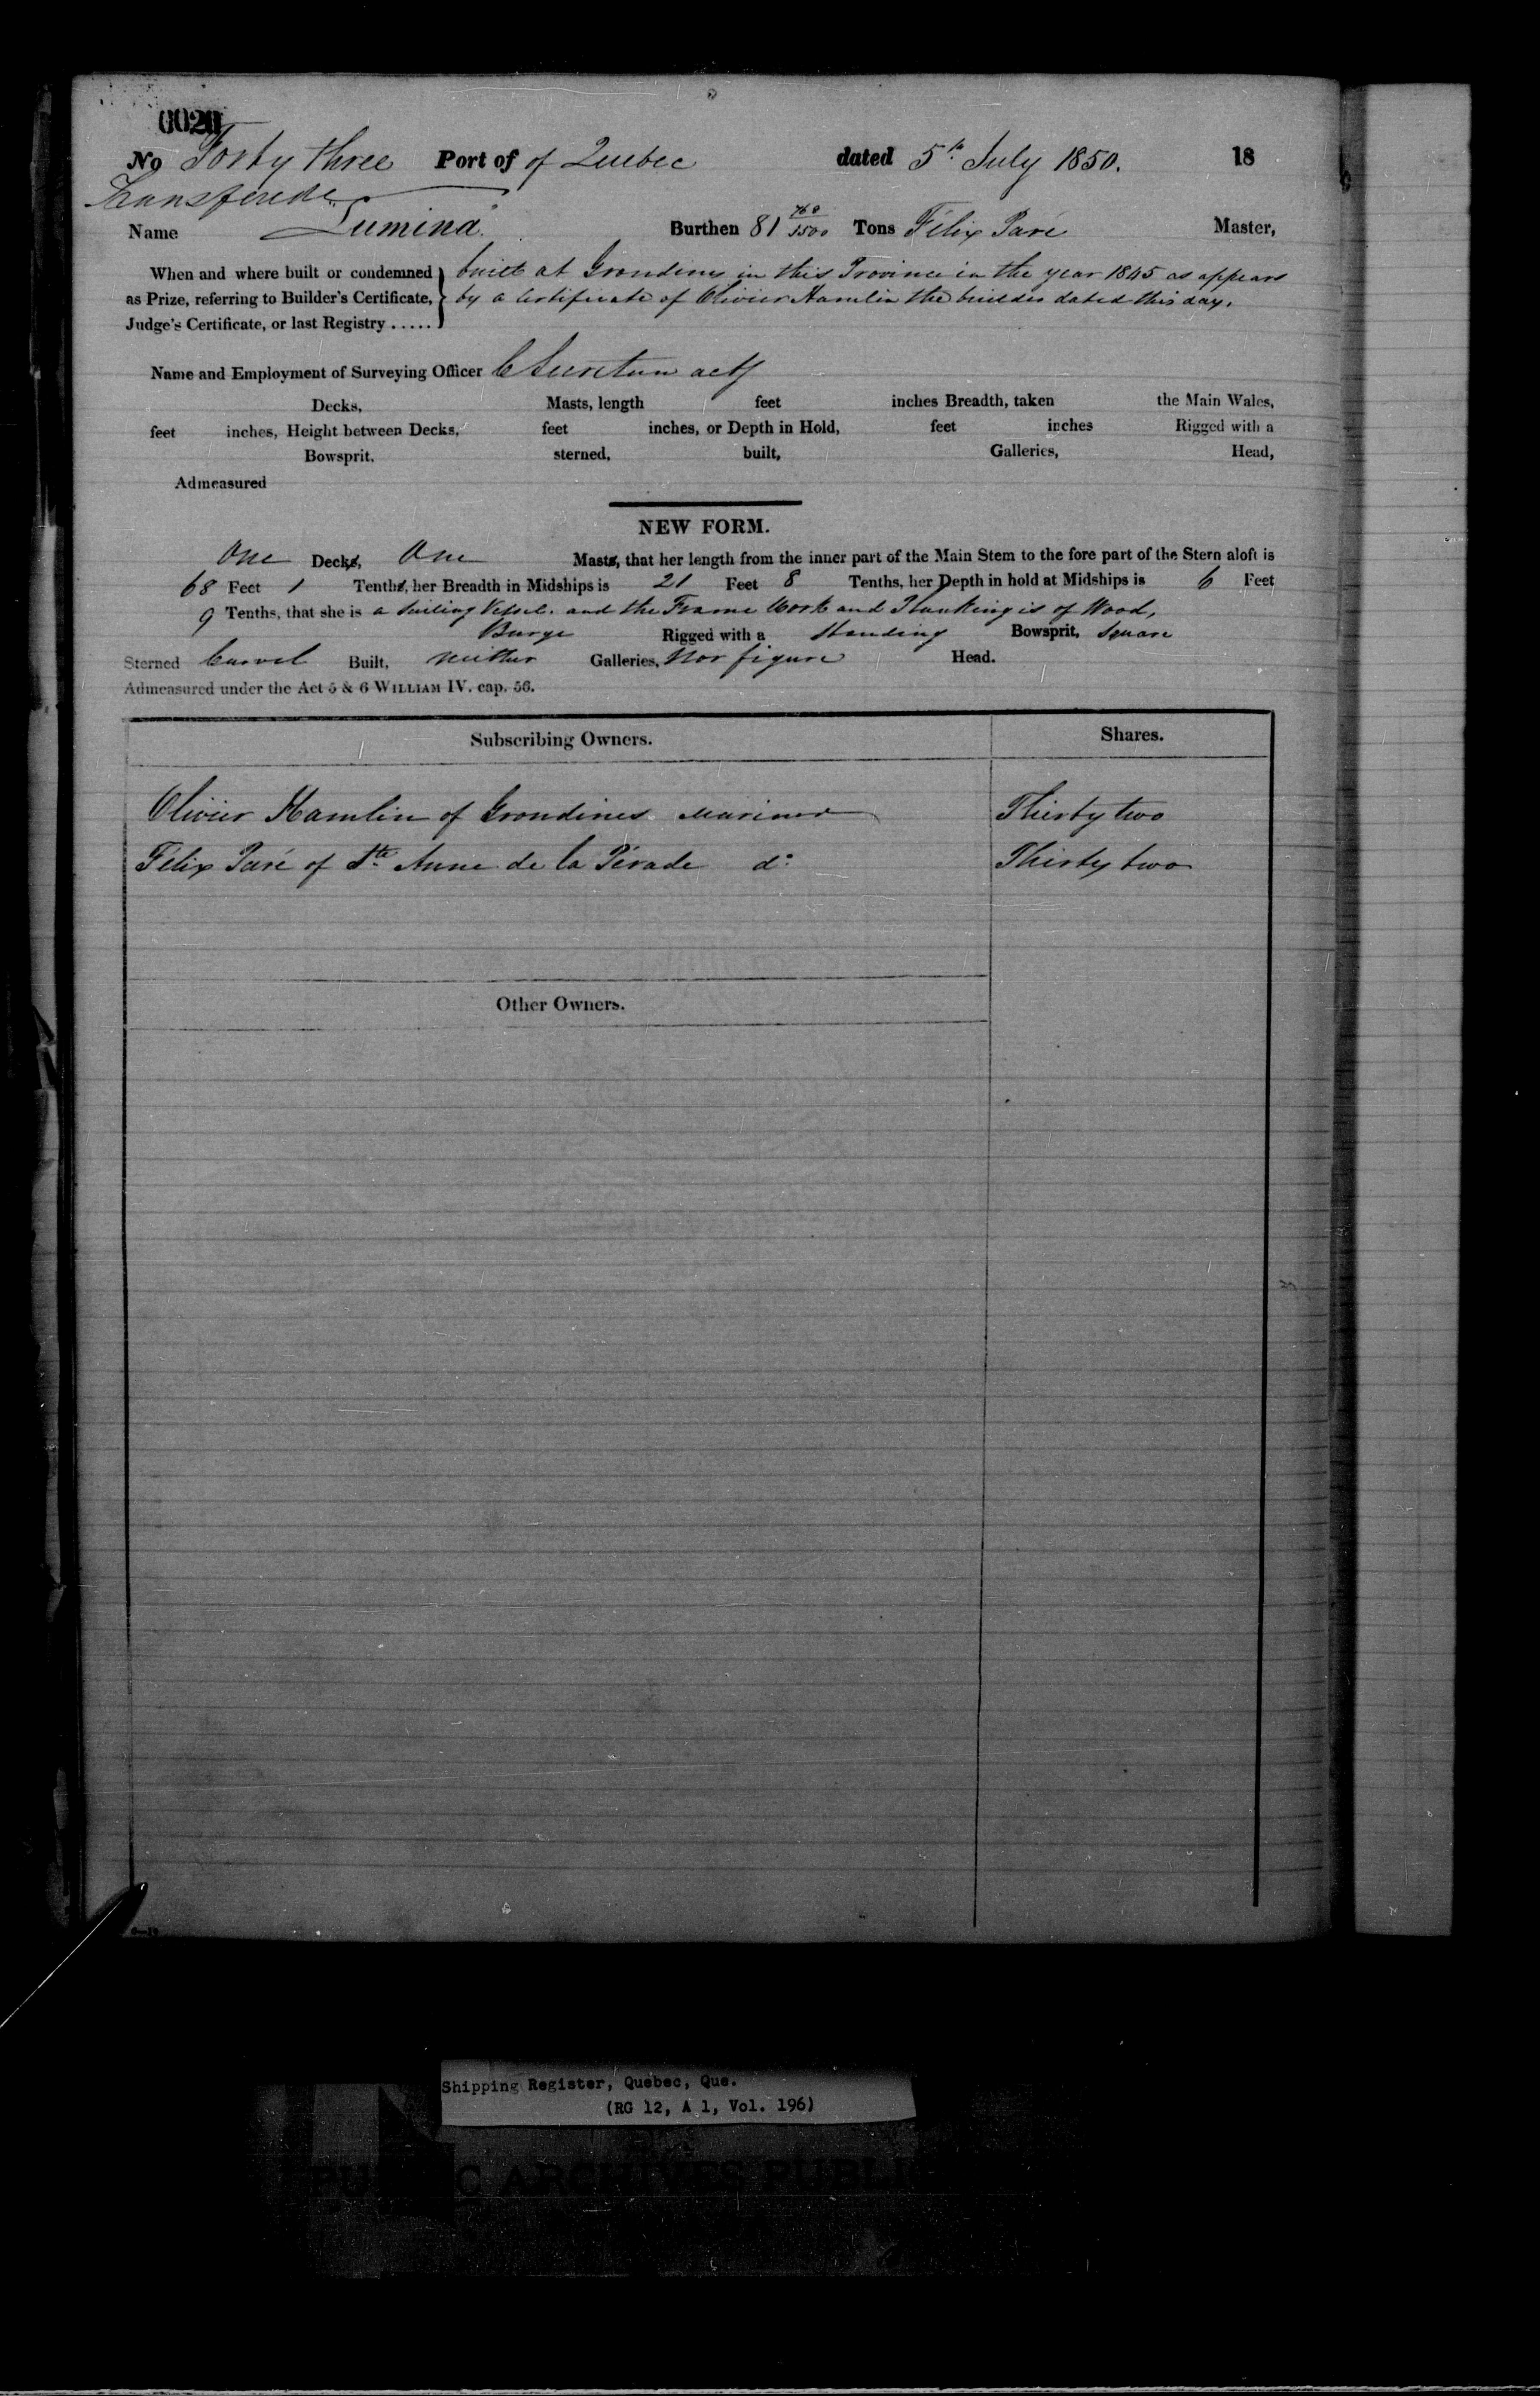 0020
No Forty three Port of of Quebec dated 5th July 1850. 18
Name "Lumina" Burthen 81 Tons Félix Paré Master,
When and where built or condemned as Prize, referring to Builder's Certificate, Judge's Certificate, or last Registry ..... } built at Grondines in this Province in the year 1845 as appears
by a Certificate of Olivier Hamlin the builder dated this day.
Name and Employment of Surveying Officer
Decks, Masts, length feet inches Breadth, taken the Main Wales,
feet inches, Height between Decks, feet inches, or Depth in Hold, feet inches Rigged with a
Bowsprit, sterned, built, Galleries, Head,
Admeasured
NEW FORM.
One Decks, One Masts, that her length from the inner part of the Main Stem to the fore part of the Stern aloft is
68 Feet 1 Tenths, her Breadth in Midships is 21 Feet 8 Tenths, her Depth in hold at Midships is 6 Feet
9 Tenths, that she is a Sailing Vessel. and the Frame Work and Planking is of Wood,
Barge Rigged with a Standing Bowsprit, Square
Sterned Carvel Built, neither Galleries, Nor figure Head.
Admeasured under the Act 5 & 6 WILLIAM IV. cap. 56.
Subscribing Owners. Shares.
Olivier Hamlin of Grondines Mariner Thirty two
Félix Paré of Ste Anne de la Pérade do Thirty two
Other Owners.
Shipping Register, Quebec, Que.
(RG 12, A 1, Vol. 196)